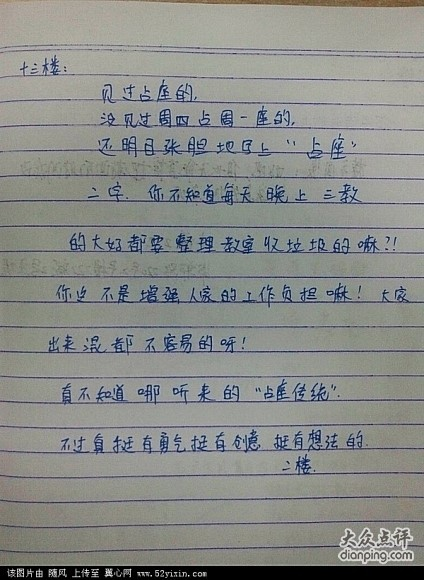 十三楼:
见过占座的,
没见过周四占周一座的,
还明目张胆地写上“占座”
二字.你不知道每天晚上三教
的大妈都要整理教室收垃圾的嘛?!
你这不是增强人家的工作负担嘛! 大家
出来混都不容易的呀!
真不知道哪听来的“占座传统”.
不过真挺有勇气挺有创意 挺有想法的.
二楼.
大众点评
dianping.com
该图片由 随风 上传至 翼心网
www.52yixin.com